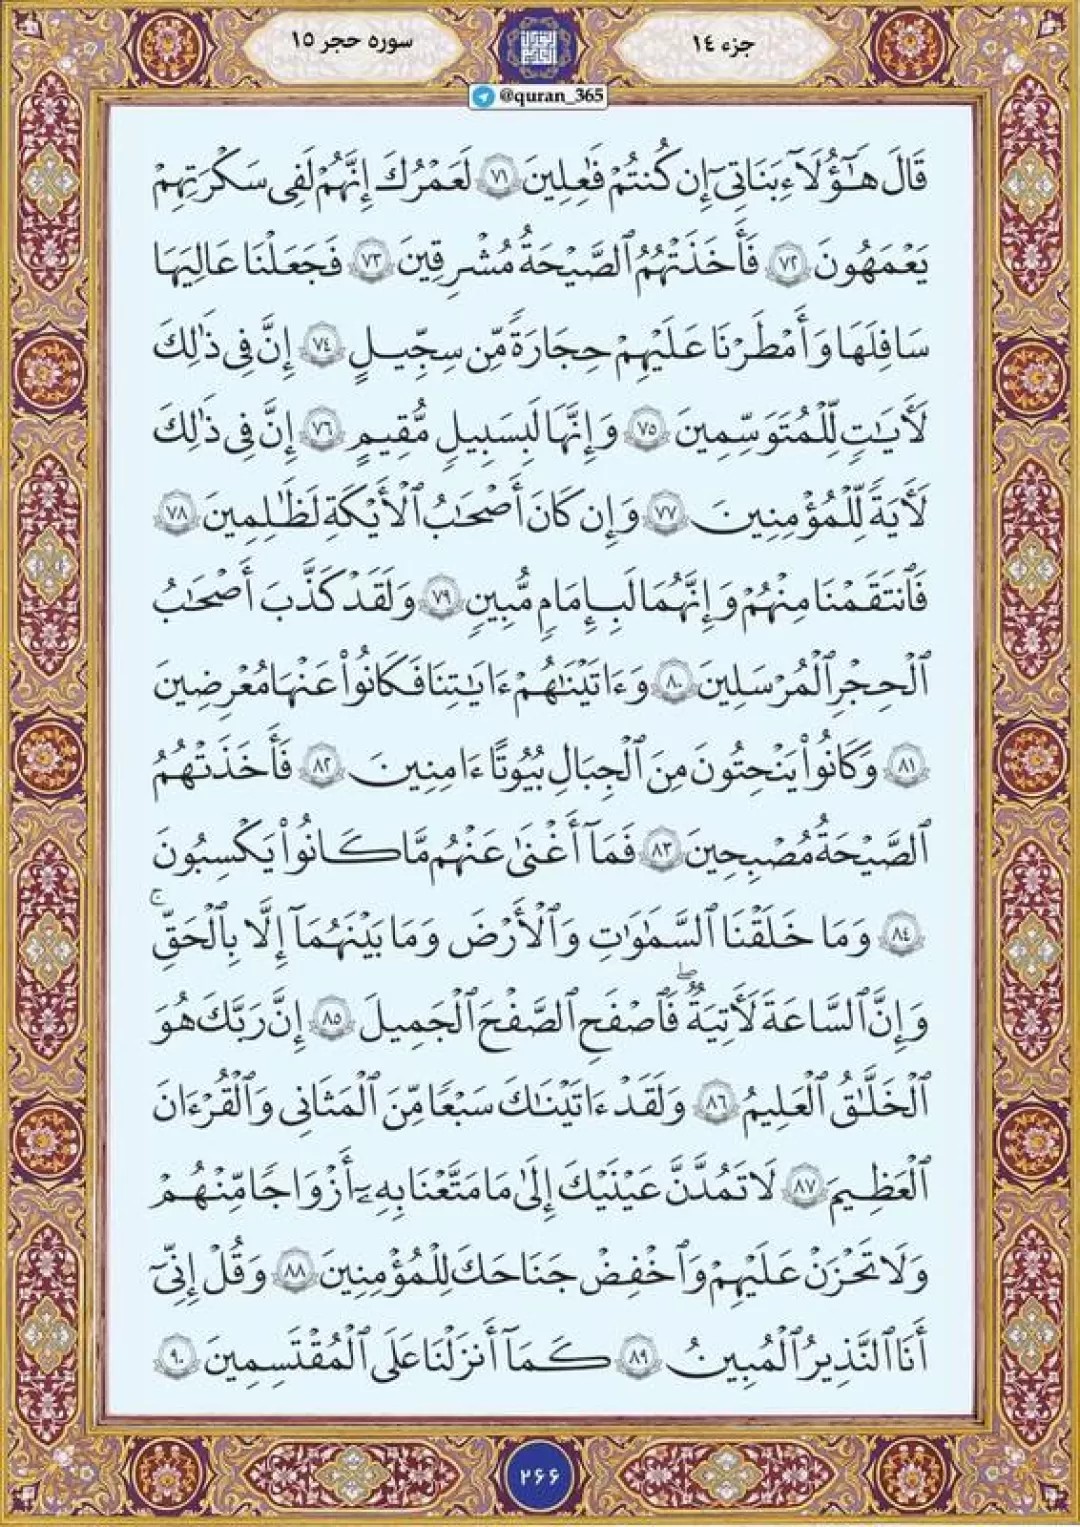 جزء ١٤
سوره حجر ١٥
@quran_365
قَالَ هَـٰٓؤُلَآءِ بَنَاتِىٓ إِن كُنتُمْ فَـٰعِلِينَ ٧١ لَعَمْرُكَ إِنَّهُمْ لَفِى سَكْرَتِهِمْ
يَعْمَهُونَ ٧٢ فَأَخَذَتْهُمُ ٱلصَّيْحَةُ مُشْرِقِينَ ٧٣ فَجَعَلْنَا عَالِيَهَا
سَافِلَهَا وَأَمْطَرْنَا عَلَيْهِمْ حِجَارَةً مِّن سِجِّيلٍ ٧٤ إِنَّ فِى ذَٰلِكَ
لَـَٔايَـٰتٍ لِّلْمُتَوَسِّمِينَ ٧٥ وَإِنَّهَا لَبِسَبِيلٍ مُّقِيمٍ ٧٦ إِنَّ فِى ذَٰلِكَ
لَـَٔايَةً لِّلْمُؤْمِنِينَ ٧٧ وَإِن كَانَ أَصْحَـٰبُ ٱلْأَيْكَةِ لَظَـٰلِمِينَ ٧٨
فَٱنتَقَمْنَا مِنْهُمْ وَإِنَّهُمَا لَبِإِمَامٍ مُّبِينٍ ٧٩ وَلَقَدْ كَذَّبَ أَصْحَـٰبُ
ٱلْحِجْرِ ٱلْمُرْسَلِينَ ٨٠ وَءَاتَيْنَـٰهُمْ ءَايَـٰتِنَا فَكَانُوا۟ عَنْهَا مُعْرِضِينَ
٨١ وَكَانُوا۟ يَنْحِتُونَ مِنَ ٱلْجِبَالِ بُيُوتًا ءَامِنِينَ ٨٢ فَأَخَذَتْهُمُ
ٱلصَّيْحَةُ مُصْبِحِينَ ٨٣ فَمَآ أَغْنَىٰ عَنْهُم مَّا كَانُوا۟ يَكْسِبُونَ
٨٤ وَمَا خَلَقْنَا ٱلسَّمَـٰوَٰتِ وَٱلْأَرْضَ وَمَا بَيْنَهُمَآ إِلَّا بِٱلْحَقِّ ۚ
وَإِنَّ ٱلسَّاعَةَ لَـَٔاتِيَةٌ ۖ فَٱصْفَحِ ٱلصَّفْحَ ٱلْجَمِيلَ ٨٥ إِنَّ رَبَّكَ هُوَ
ٱلْخَلَّـٰقُ ٱلْعَلِيمُ ٨٦ وَلَقَدْ ءَاتَيْنَـٰكَ سَبْعًا مِّنَ ٱلْمَثَانِى وَٱلْقُرْءَانَ
ٱلْعَظِيمَ ٨٧ لَا تَمُدَّنَّ عَيْنَيْكَ إِلَىٰ مَا مَتَّعْنَا بِهِۦٓ أَزْوَٰجًا مِّنْهُمْ
وَلَا تَحْزَنْ عَلَيْهِمْ وَٱخْفِضْ جَنَاحَكَ لِلْمُؤْمِنِينَ ٨٨ وَقُلْ إِنِّىٓ
أَنَا ٱلنَّذِيرُ ٱلْمُبِينُ ٨٩ كَمَآ أَنزَلْنَا عَلَى ٱلْمُقْتَسِمِينَ ٩٠
۲۶۶